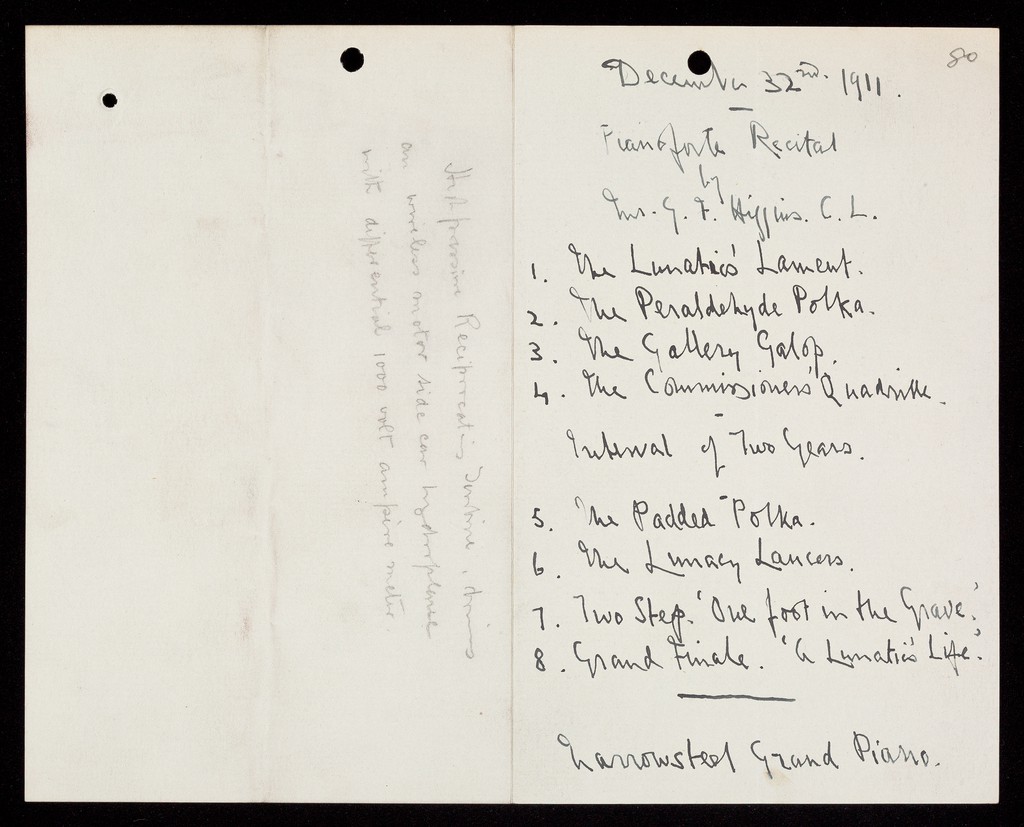 80
December 32nd. 1911.
Pianoforte Recital
by
Mr. G. F. Higgins. C. L.
1. The Lunatic's Lament.
2. The Peraldehyde Polka.
3. The Gallery Galop.
4. The Commissioners' Quadrille.
Interval of Two Years.
5. The Padded Polka.
6. The Lunacy Lancers.
7. Two Step. 'One foot in the Grave.'
8. Grand Finale. 'A Lunatic's Life.'
Narrowsteel Grand Piano.
Reciprocating
an wireless motor side car hydroplane
with differential 1000 volt ampère meter.